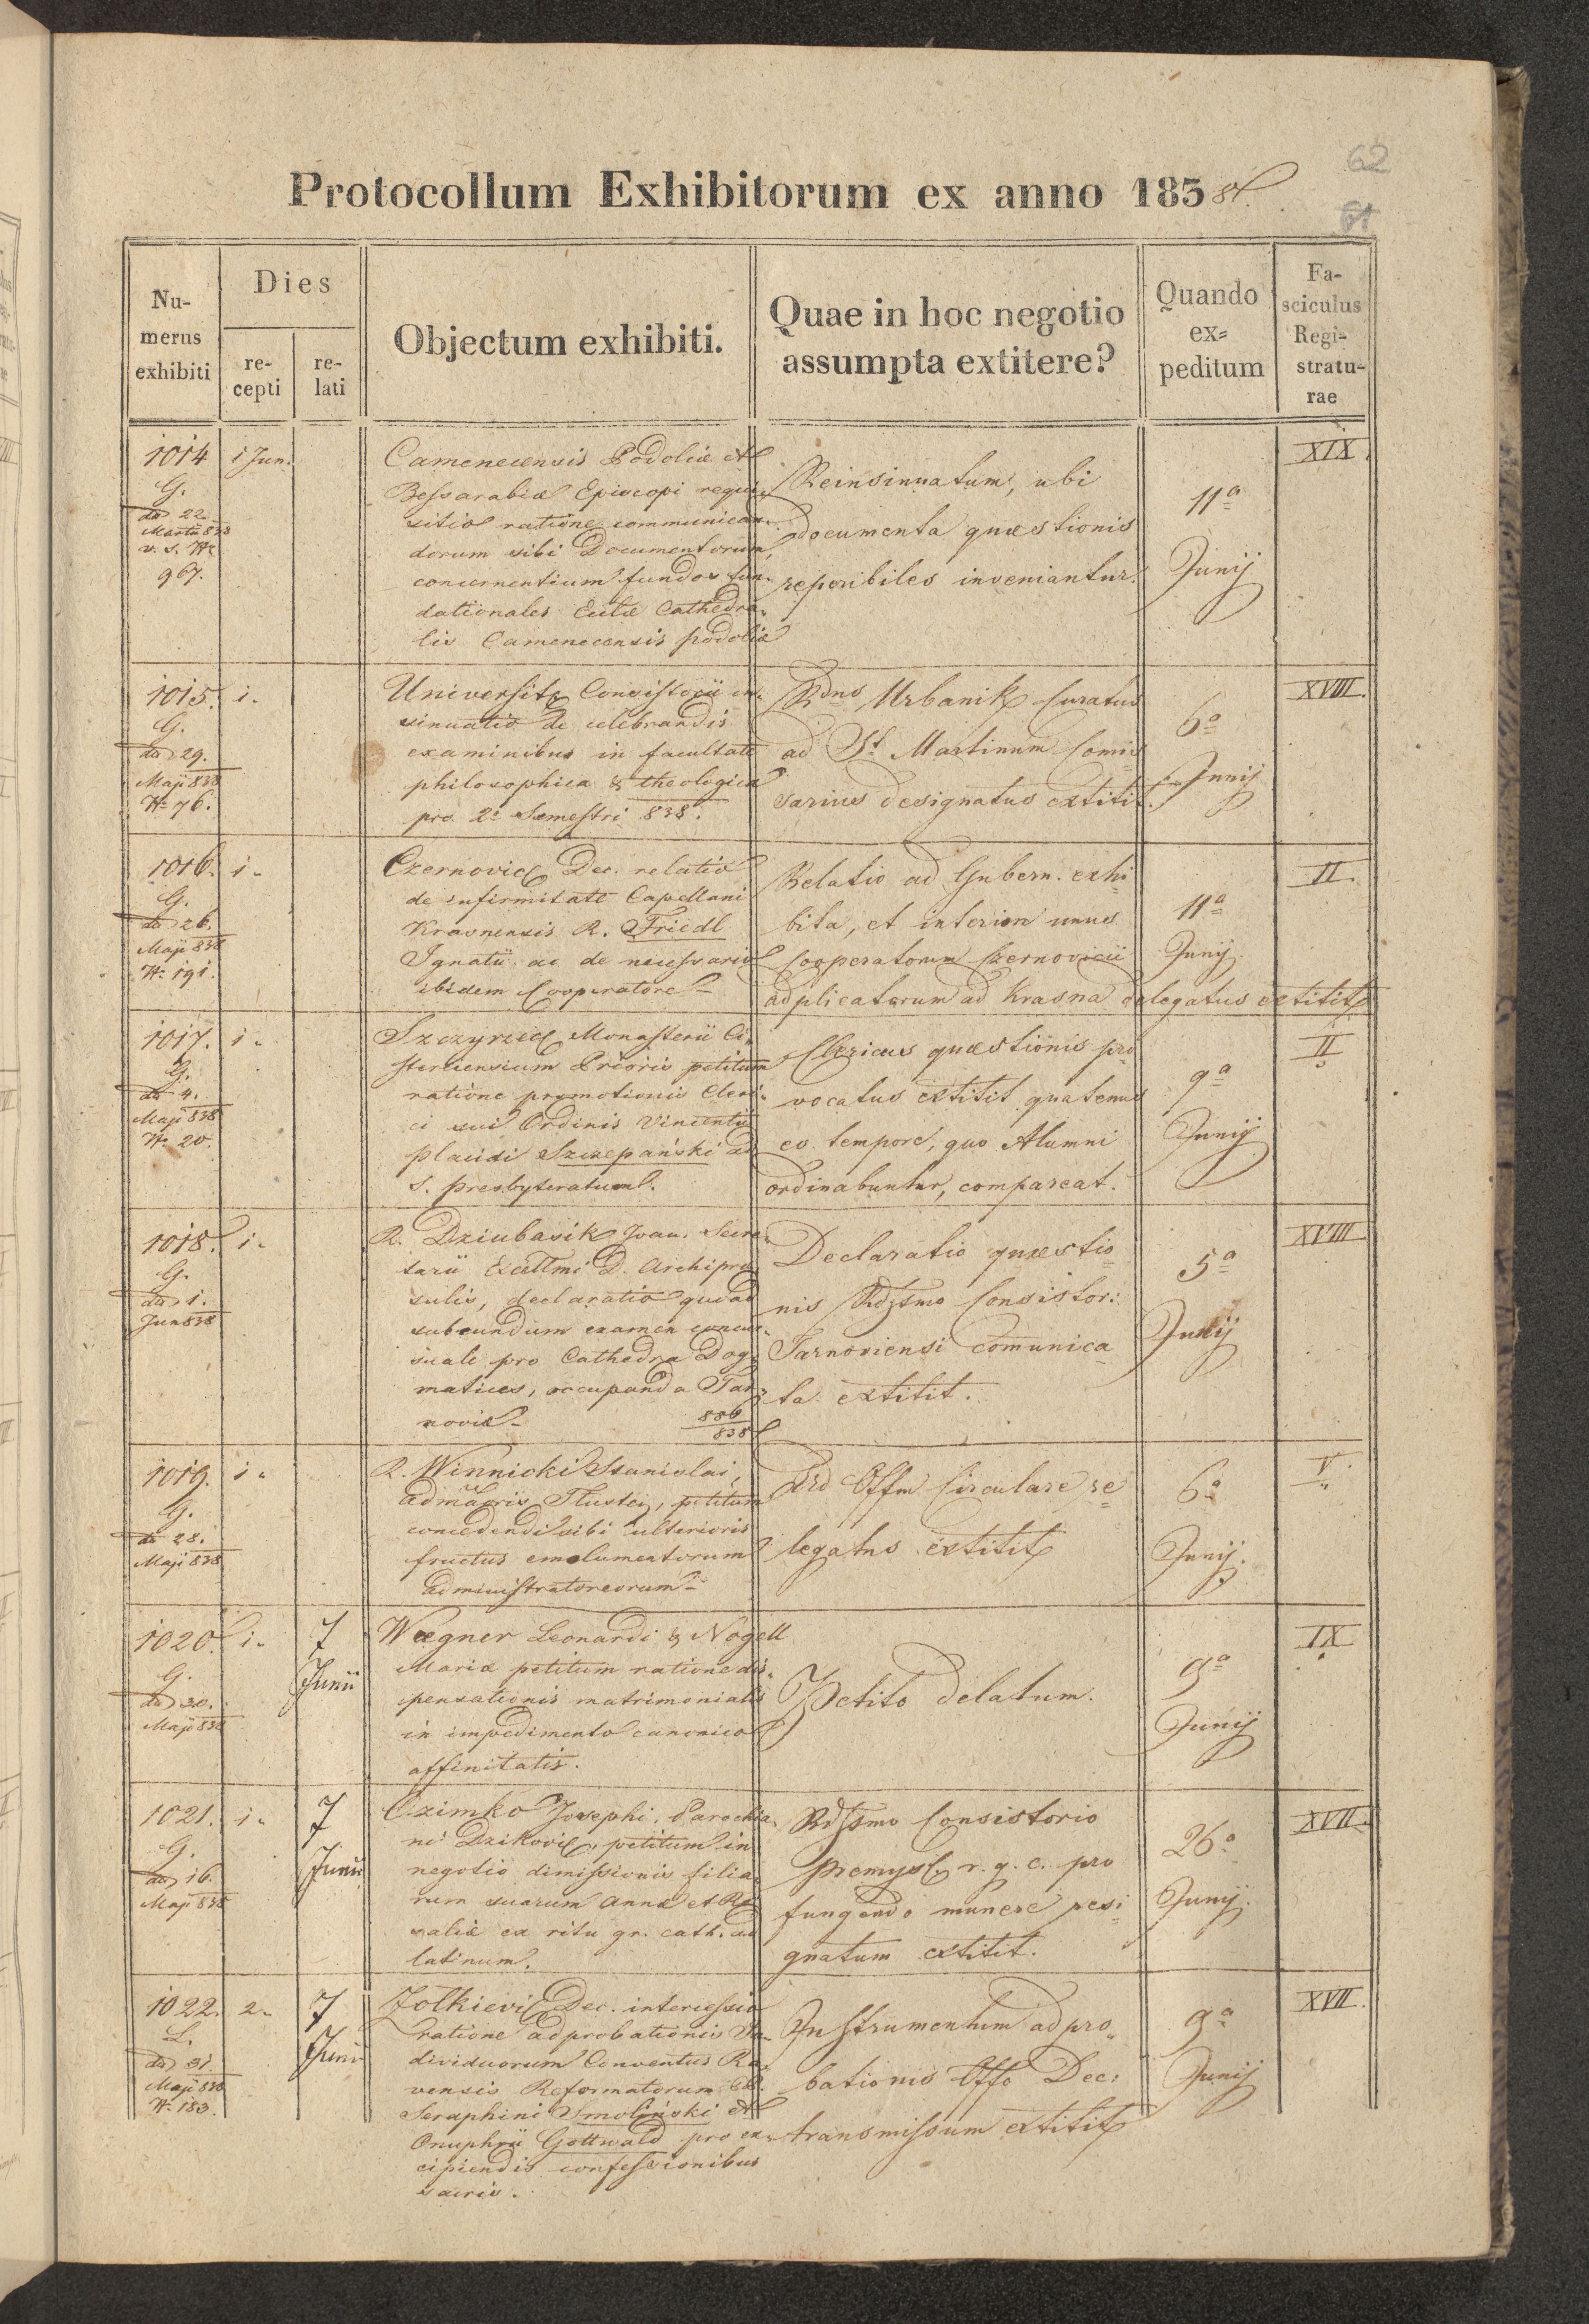 62
61
Protocollum Exhibitorum ex anno 1838.
Numerus exhibiti
Dies
recepti
relati
Objectum exhibiti.
Quae in hoc negotio
assumpta extitere?
Quando
ex=
peditum
Fa-
sciculus
Regi-
stratu-
rae
1014
G.
dto 22.
Martii 838
v. s. Nr
967.
1 Jun.
Camenecensis Podoliæ et
Bessarabiæ Episcopi requi-
sitio ratione communican-
dorum sibi Documentorum,
concernentium fundos fun-
dationales Eccliæ Cathedra-
lis Camenecensis podoliæ
Reinsinuatum, ubi
documenta quæstionis
reperibiles inveniantur.
11a
Junij
XIX.
1015.
G.
dto 29.
Maji 838
Nr 76.
1.
Universit. Consistorii in-
sinuatio de celebrandis
examinibus in facultate
philosophica & theologica
pro 2o Semestri 838.
Rdns Urbanik Curatus
ad St. Martinum Comis
sarius designatus extitit.
6a
Junij
XVIII.
1016.
G.
dto 26.
Maji 838
Nr. 191.
1.
Czernovic. Dec. relatio
de infirmitate Capellani
Krasnensis R. Friedl
Ignatii ac de necessario
ibidem Cooperatore
Relatio ad Gubern. exhi
bita, et interim unus
Cooperatorum Czernovicii
adplicatorum ad Krasna delegatus extitit
11a
Junij
II.
1017.
G.
dto 4.
Maji 838
Nr. 20.
1.
Szczyrzec. Monasterii Ci-
sterciensium Prioris petitum
ratione promotionis Cleri-
ci sui Ordinis Vincentii
Placidi Szczepański ad
S. presbyteratum.
Clericus quæstionis pro
vocatus extitit quatenus
eo tempore, quo Alumni
ordinabuntur, compareat.
9a
Junij
II
1018.
G.
dto 1.
Jun 838
1.
R. Dziubasik Joan. Secre-
tarii Excellmi D. Archipræ-
sulis, declaratio quoad
subeundum examen concur-
suale pro Cathedra Dog-
matices, occupanda Tar-
noviæ
886
838
Declaratio quæstio
nis Rdssmo Consistor:
Tarnoviensi comunica
ta extitit.
5a
Junij
XVIII
1019.
G.
dto 28.
Maji 838
1.
R. Winnicki Stanislai,
admritoris Tluste, petitum
concedendi sibi ulterioris
fructus emolumentorum
administratoreorum
Ad Offm Circulare re
legatus extitit
6a
Junij.
V.
1020.
G.
dto 30.
Maji 838
1.
7
Junii
Wægner Leonardi & Nogell
Mariæ petitum ratione dis-
pensationis matrimonialis
in impedimento canonico
affinitatis.
Petito delatum.
9a
Junij
IX
1021.
G.
dto 16.
Maji 838
1.
7
Junii
Czimko Josephi, Parochia-
ni Dzikovic. petitum in
negotio dimissionis filia-
rum suarum Annæ et Ro
saliæ ex ritu gr. cath. ad
latinum.
Rdssmo Consistorio
Premysl. r. g. c. pro
fungendo munere resi
gnatum extitit.
26a
Junij.
XVII.
1022.
L.
dto 31.
Maji 838
Nr. 183.
2.
7
Junii
Zolkievi. Dec. intercessio
ratione adprobationis In-
dividuorum Conventus Ra-
vensis Reformatorum PP.
Seraphini Smoliński et
Onuphrii Gottwald pro ex-
cipiendis confessionibus
sacris.
Instrumentum adpro-
bationis Offo Dec:
transmissum extitit
9a
Junij
XVII.